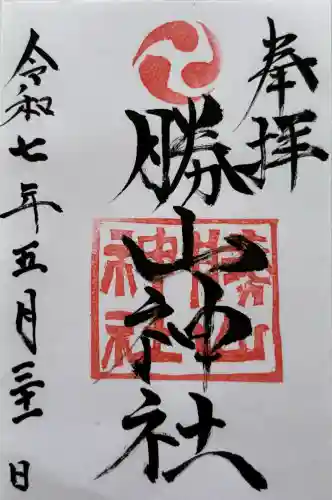 奉拝
勝山神社
勝山神社
令和七年五月三十一日